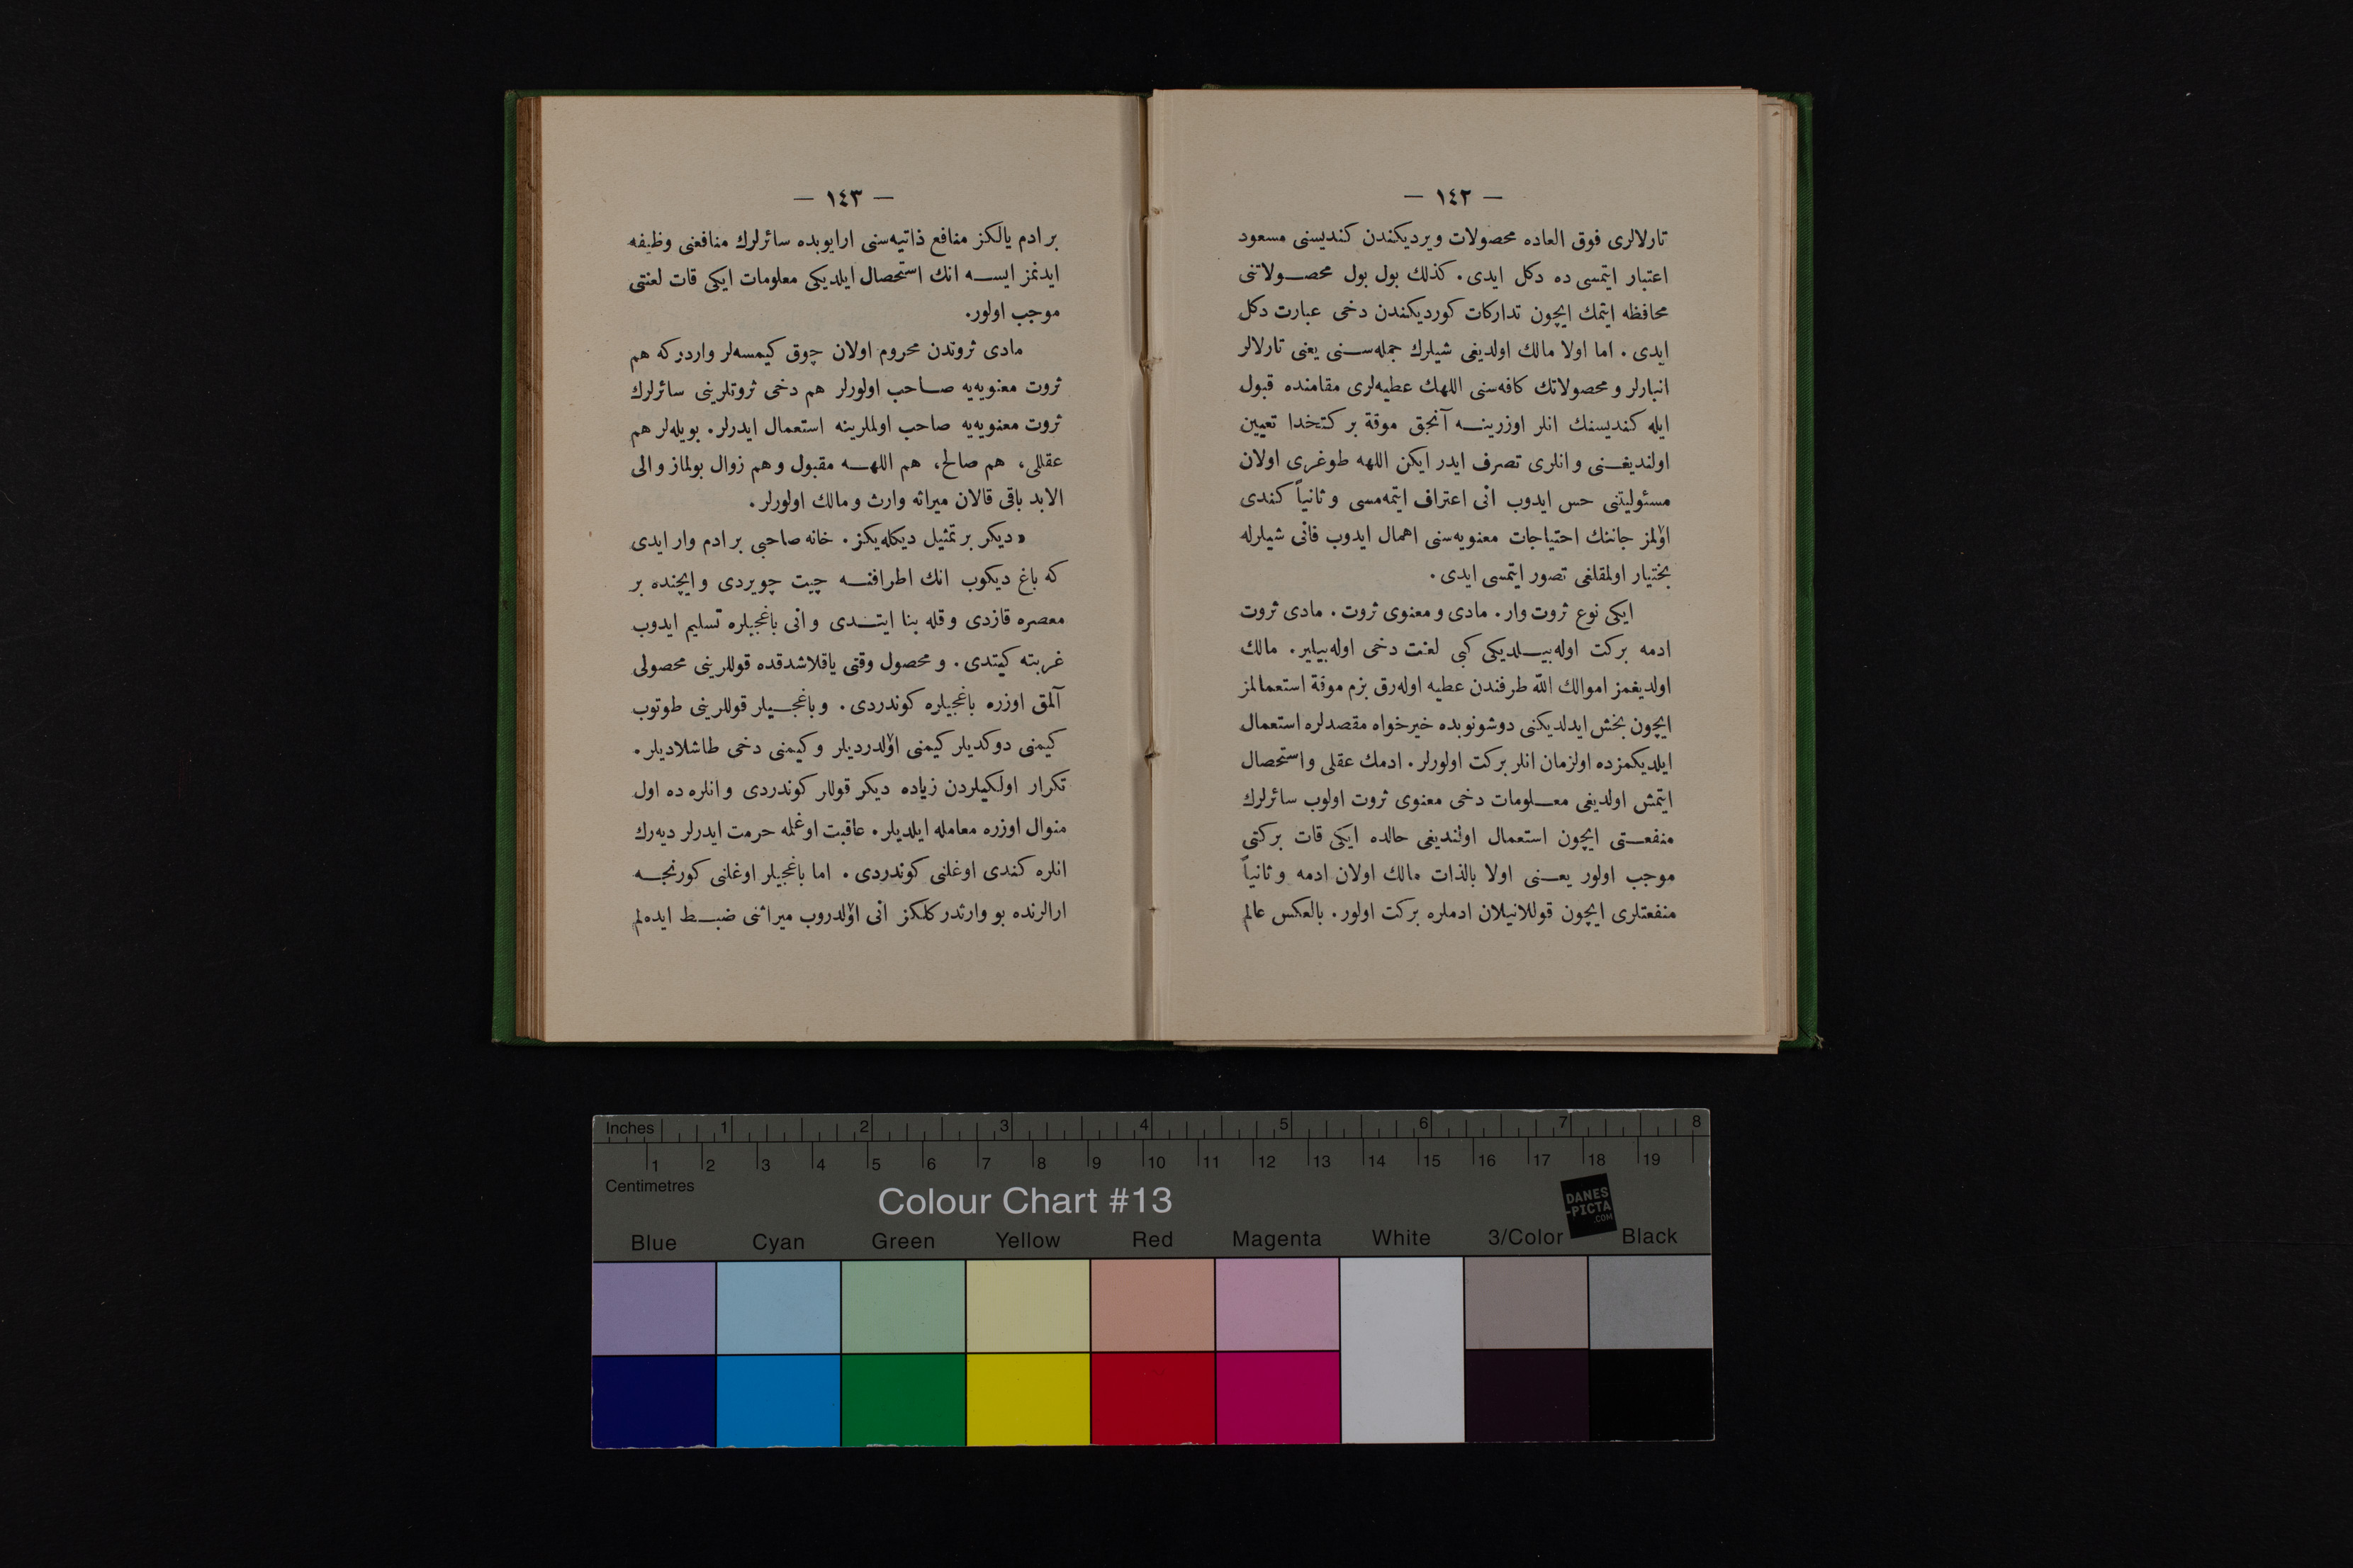 — ١٤٢ —
تارلالرى فوق العاده محصولات ويرديكندن كنديسنى مسعود
اعتبار ايتمسى ده دكل ايدى. كذلك بول بول محصولاتنى
محافظه ايتمك ايچون تداركات كورديكندن دخى عبارت دكل
ايدى. اما اولا مالك اولديغى شيلرك جمله‌سنى يعنى تارلالر
انبارلر و محصولاتك كافه‌سنى اللهك عطيه‌لرى مقامنده قبول
ايله كنديسنك انلر اوزرينه آنجق موقة بر كتخدا تعيين
اولنديغنى و انلرى تصرف ايدر ايكن اللهه طوغرى اولان
مسئوليتنى حس ايدوب انى اعتراف ايتمه‌مسى و ثانياً كندى
اؤلمز جاننك احتياجات معنويه‌سنى اهمال ايدوب فانى شيلرله
بختيار اولمقلغى تصور ايتمسى ايدى.
ايكى نوع ثروت وار. مادى و معنوى ثروت. مادى ثروت
ادمه بركت اوله‌بيلديكى كبى لعنت دخى اوله‌بيلير. مالك
اولديغمز اموالك الله طرفندن عطيه اوله‌رق بزم موقة استعمالمز
ايچون بخش ايدلديكنى دوشونوبده خيرخواه مقصدلره استعمال
ايلديكمزده اولزمان انلر بركت اولورلر. ادمك عقلى و استحصال
ايتمش اولديغى معلومات دخى معنوى ثروت اولوب سائرلرك
منفعتى ايچون استعمال اولنديغى حالده ايكى قات بركتى
موجب اولور يعنى اولا بالذات مالك اولان ادمه و ثانياً
منفعتلرى ايچون قوللانيلان ادملره بركت اولور. بالعكس عالم
— ١٤٣ —
بر ادم يالكز منافع ذاتيه‌سنى ارايوبده سائرلرك منافعنى وظيفه
ايدنمز ايسه انك استحصال ايلديكى معلومات ايكى قات لعنتى
موجب اولور.
مادى ثروتدن محروم اولان چوق كيمسه‌لر واردر كه هم
ثروت معنويه‌يه صاحب اولورلر هم دخى ثروتلرينى سائرلرك
ثروت معنويه‌يه صاحب اولملرينه استعمال ايدرلر. بويله‌لر هم
عقللى، هم صالح، هم اللهه مقبول و هم زوال بولماز و الى
الابد باقى قالان ميراثه وارث و مالك اولورلر.
«ديكر بر تمثيل ديكله‌يكز. خانه صاحبى بر ادم وار ايدى
كه باغ ديكوب انك اطرافنه چيت چويردى و ايچنده بر
معصره قازدى و قله بنا ايتدى و انى باغجيلره تسليم ايدوب
غربته كيتدى. و محصول وقتى ياقلاشدقده قوللرينى محصولى
آلمق اوزره باغجيلره كوندردى. و باغجيلر قوللرينى طوتوب
كيمنى دوكديلر كيمنى اؤلدرديلر و كيمنى دخى طاشلاديلر.
تكرار اولكيلردن زياده ديكر قوللر كوندردى و انلره ده اول
منوال اوزره معامله ايلديلر. عاقبت اوغلمه حرمت ايدرلر ديه‌رك
انلره كندى اوغلنى كوندردى. اما باغجيلر اوغلنى كورنجه
ارالرنده بو وارثدر كلكز انى اؤلدروب ميراثنى ضبط ايده‌لم
Inches 1 2 3 4 5 6 7 8
1 2 3 4 5 6 7 8 9 10 11 12 13 14 15 16 17 18 19
Centimetres
Colour Chart #13
DANES
-PICTA
.COM
Blue Cyan Green Yellow Red Magenta White 3/Color Black